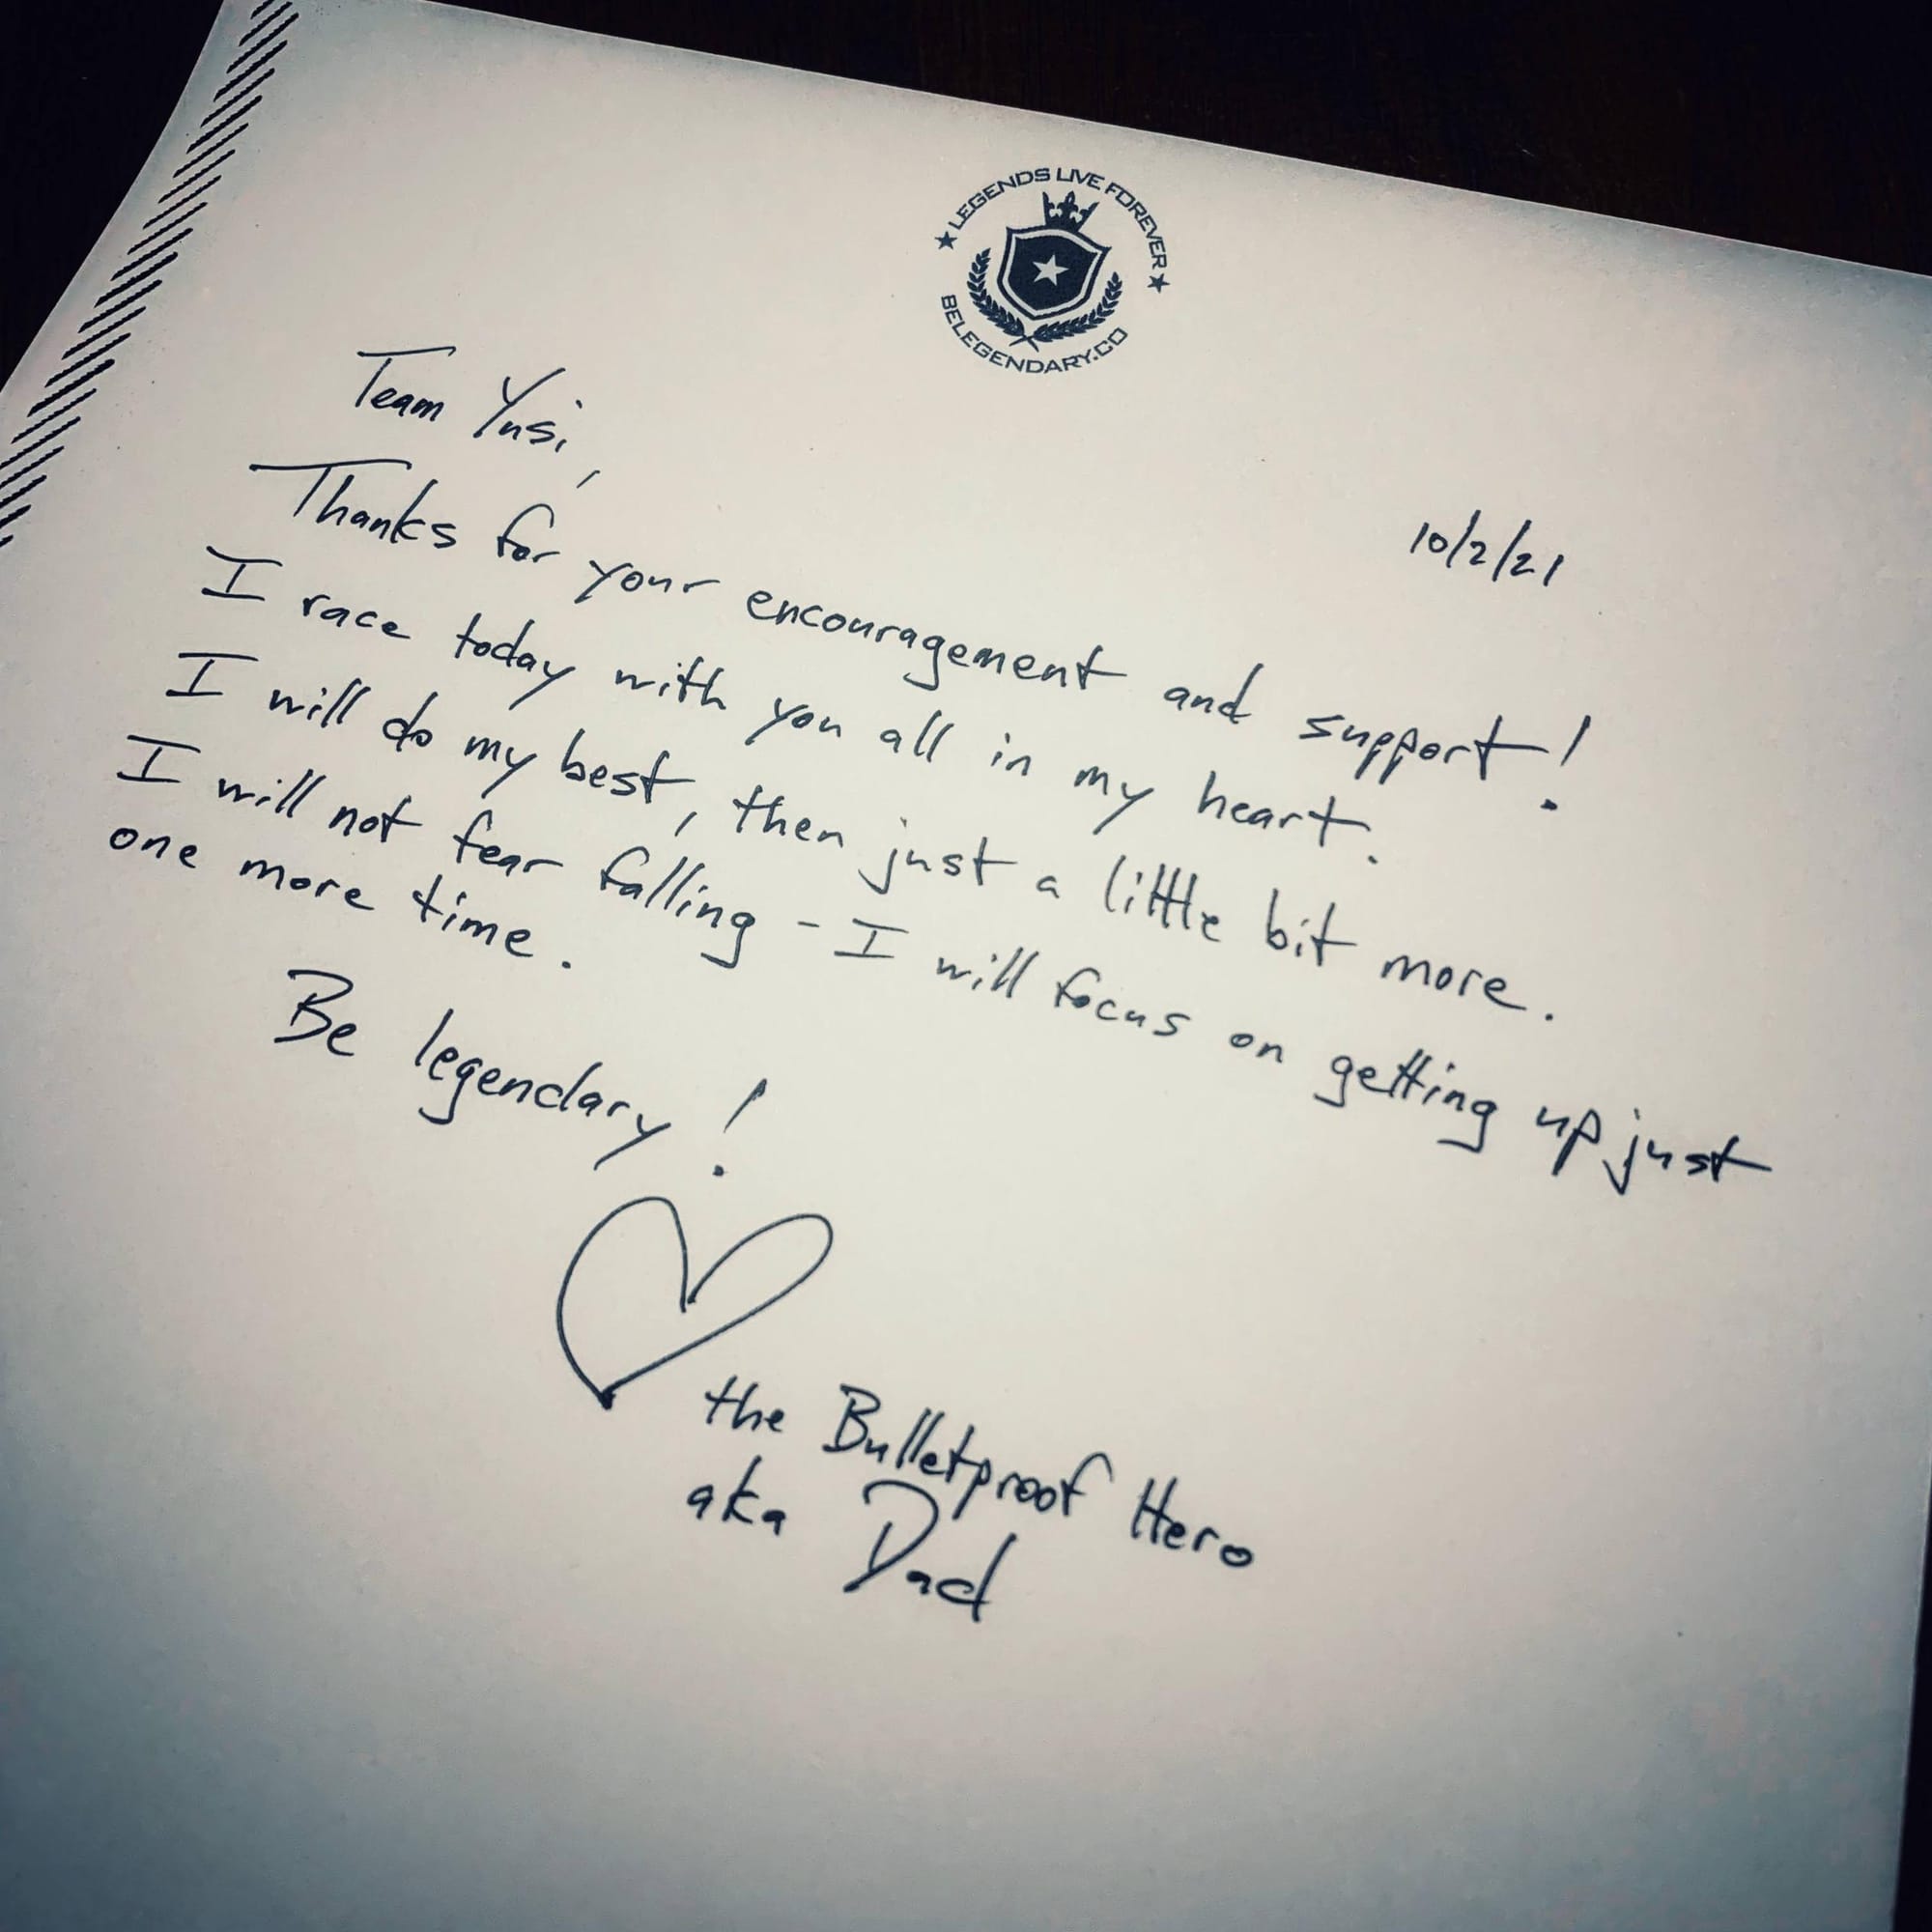 LEGENDS LIVE FOREVER
BELEGENDARY.CO
10/2/21
Team Yusi,
Thanks for your encouragement and support!
I race today with you all in my heart.
I will do my best, then just a little bit more.
I will not fear falling - I will focus on getting up just
one more time.
Be legendary!
the Bulletproof Hero
aka Dad